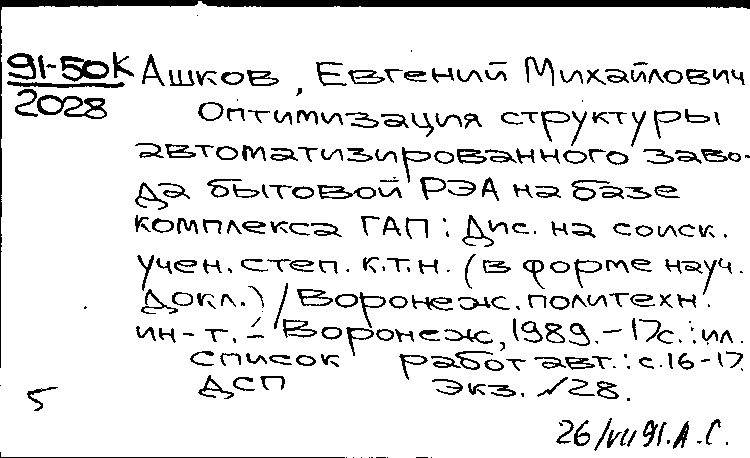 91-50К Ашков, Евгений Михайлович
2028 Оптимизация структуры
автоматизированного заво-
да бытовой РЭА на базе
комплекса ГАП: Дис. на соиск.
учен. степ. к.т.н. (в форме науч.
докл.) / Воронеж. политехн.
ин-т. - Воронеж, 1989. - 17с.: ил.
Список работ авт.: с. 16-17
ДСП экз. №28.
5
26/VII 91. А.С.